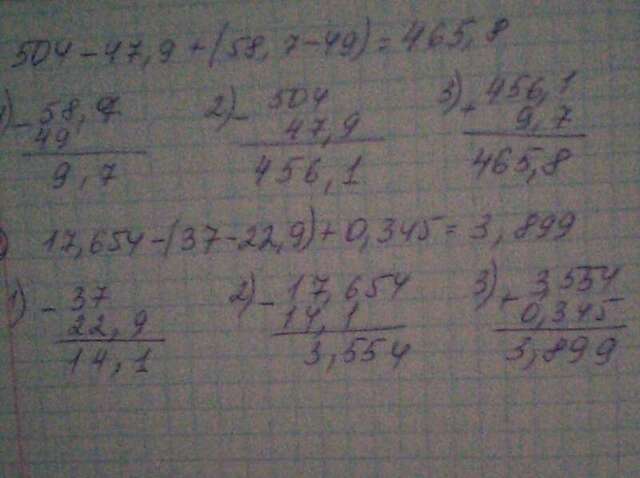 504-47,9+(58,7-49)=465,8
1) -58,7 2) -504 3) +456,1
49 47,9 9,7
9,7 456,1 465,8
17,654-(37-22,9)+0,345=3,899
1) -37 2) -17,654 3) +3,554
22,9 14,1 0,345
14,1 3,554 3,899